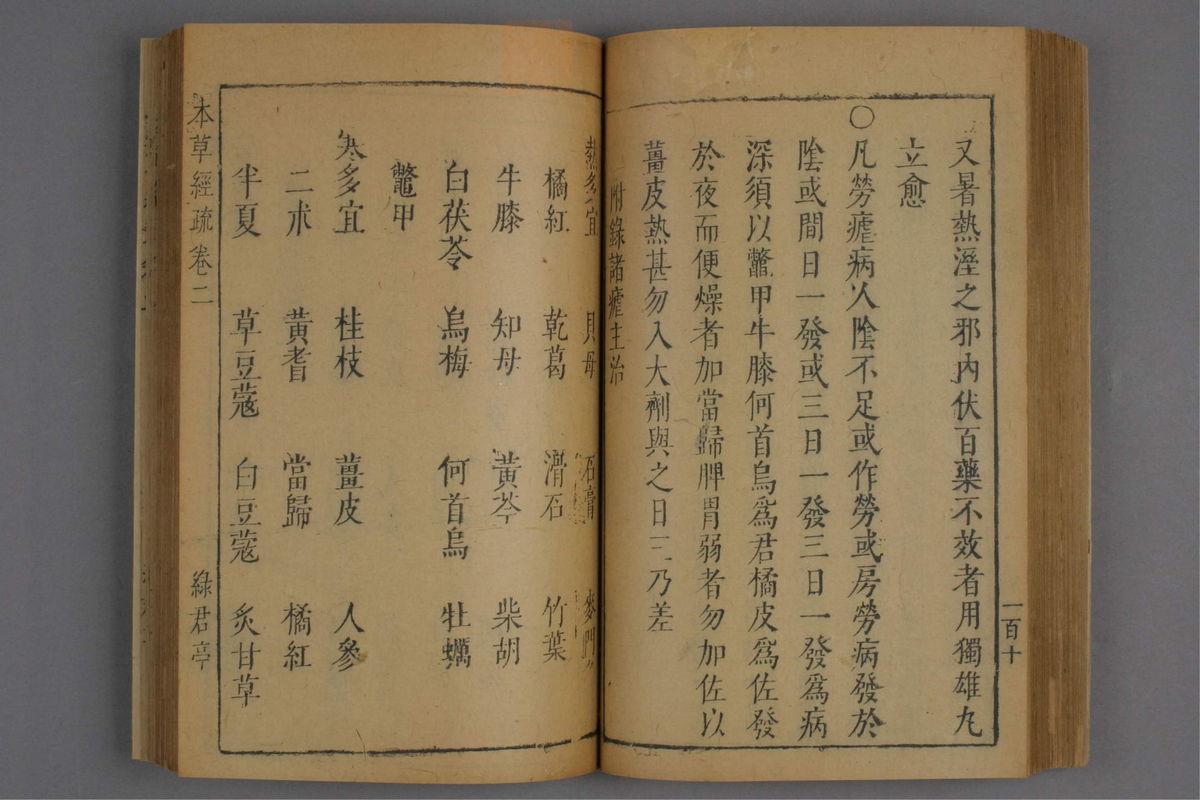 一百十
又暑熱溼之邪內伏百藥不效者用獨雄丸
立愈
〇凡勞瘧病人陰不足或作勞或房勞病發於
陰或間日一發或三日一發三日一發爲病
深須以鼈甲牛膝何首烏爲君橘皮爲佐發
於夜而便燥者加當歸脾胃弱者勿加佐以
薑皮熱甚勿入大劑與之日二乃差
附錄諸瘧主治
熱多宜 貝母 石膏 麥門
橘紅 乾葛 滑石 竹葉
牛膝 知母 黃芩 柴胡
白茯苓 烏梅 何首烏 牡蠣
鼈甲
寒多宜 桂枝 薑皮 人參
二朮 黃耆 當歸 橘紅
半夏 草豆蔻 白豆蔻 炙甘草
本草經疏卷二 綠君亭